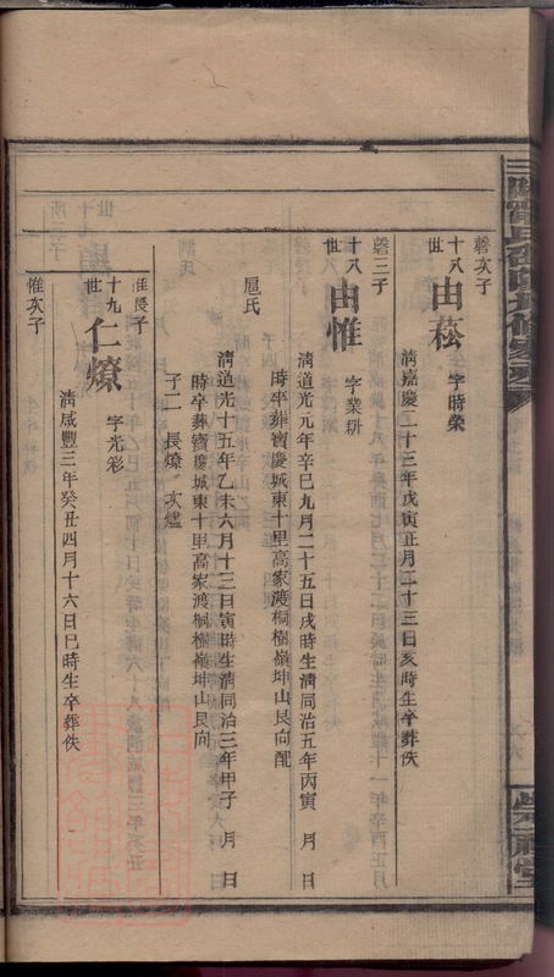 磬次子
十八世
由菘
字時榮
清嘉慶二十三年戊寅正月二十三日亥時生卒葬佚
磬三子
十八世
由惟
字業耕
清道光元年辛巳九月二十五日戌時生清同治五年丙寅 月 日
時卒葬寶慶城東十里高家渡桐樹嶺坤山艮向配
扈氏
清道光十五年乙未六月十三日寅時生清同治三年甲子 月 日
時卒葬寶慶城東十里高家渡桐樹嶺坤山艮向
子二 長燎 次爐
惟長子
十九世
仁燎
字光彩
清咸豐三年癸丑四月十六日巳時生卒葬佚
惟次子